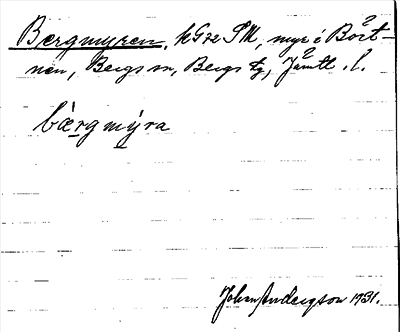 Bergmyren, hG72SM, myr i Börtnan, Bergs sn, Bergs tg, Jämtl. l.
bærgmýra
Johan Anderzson 1931.